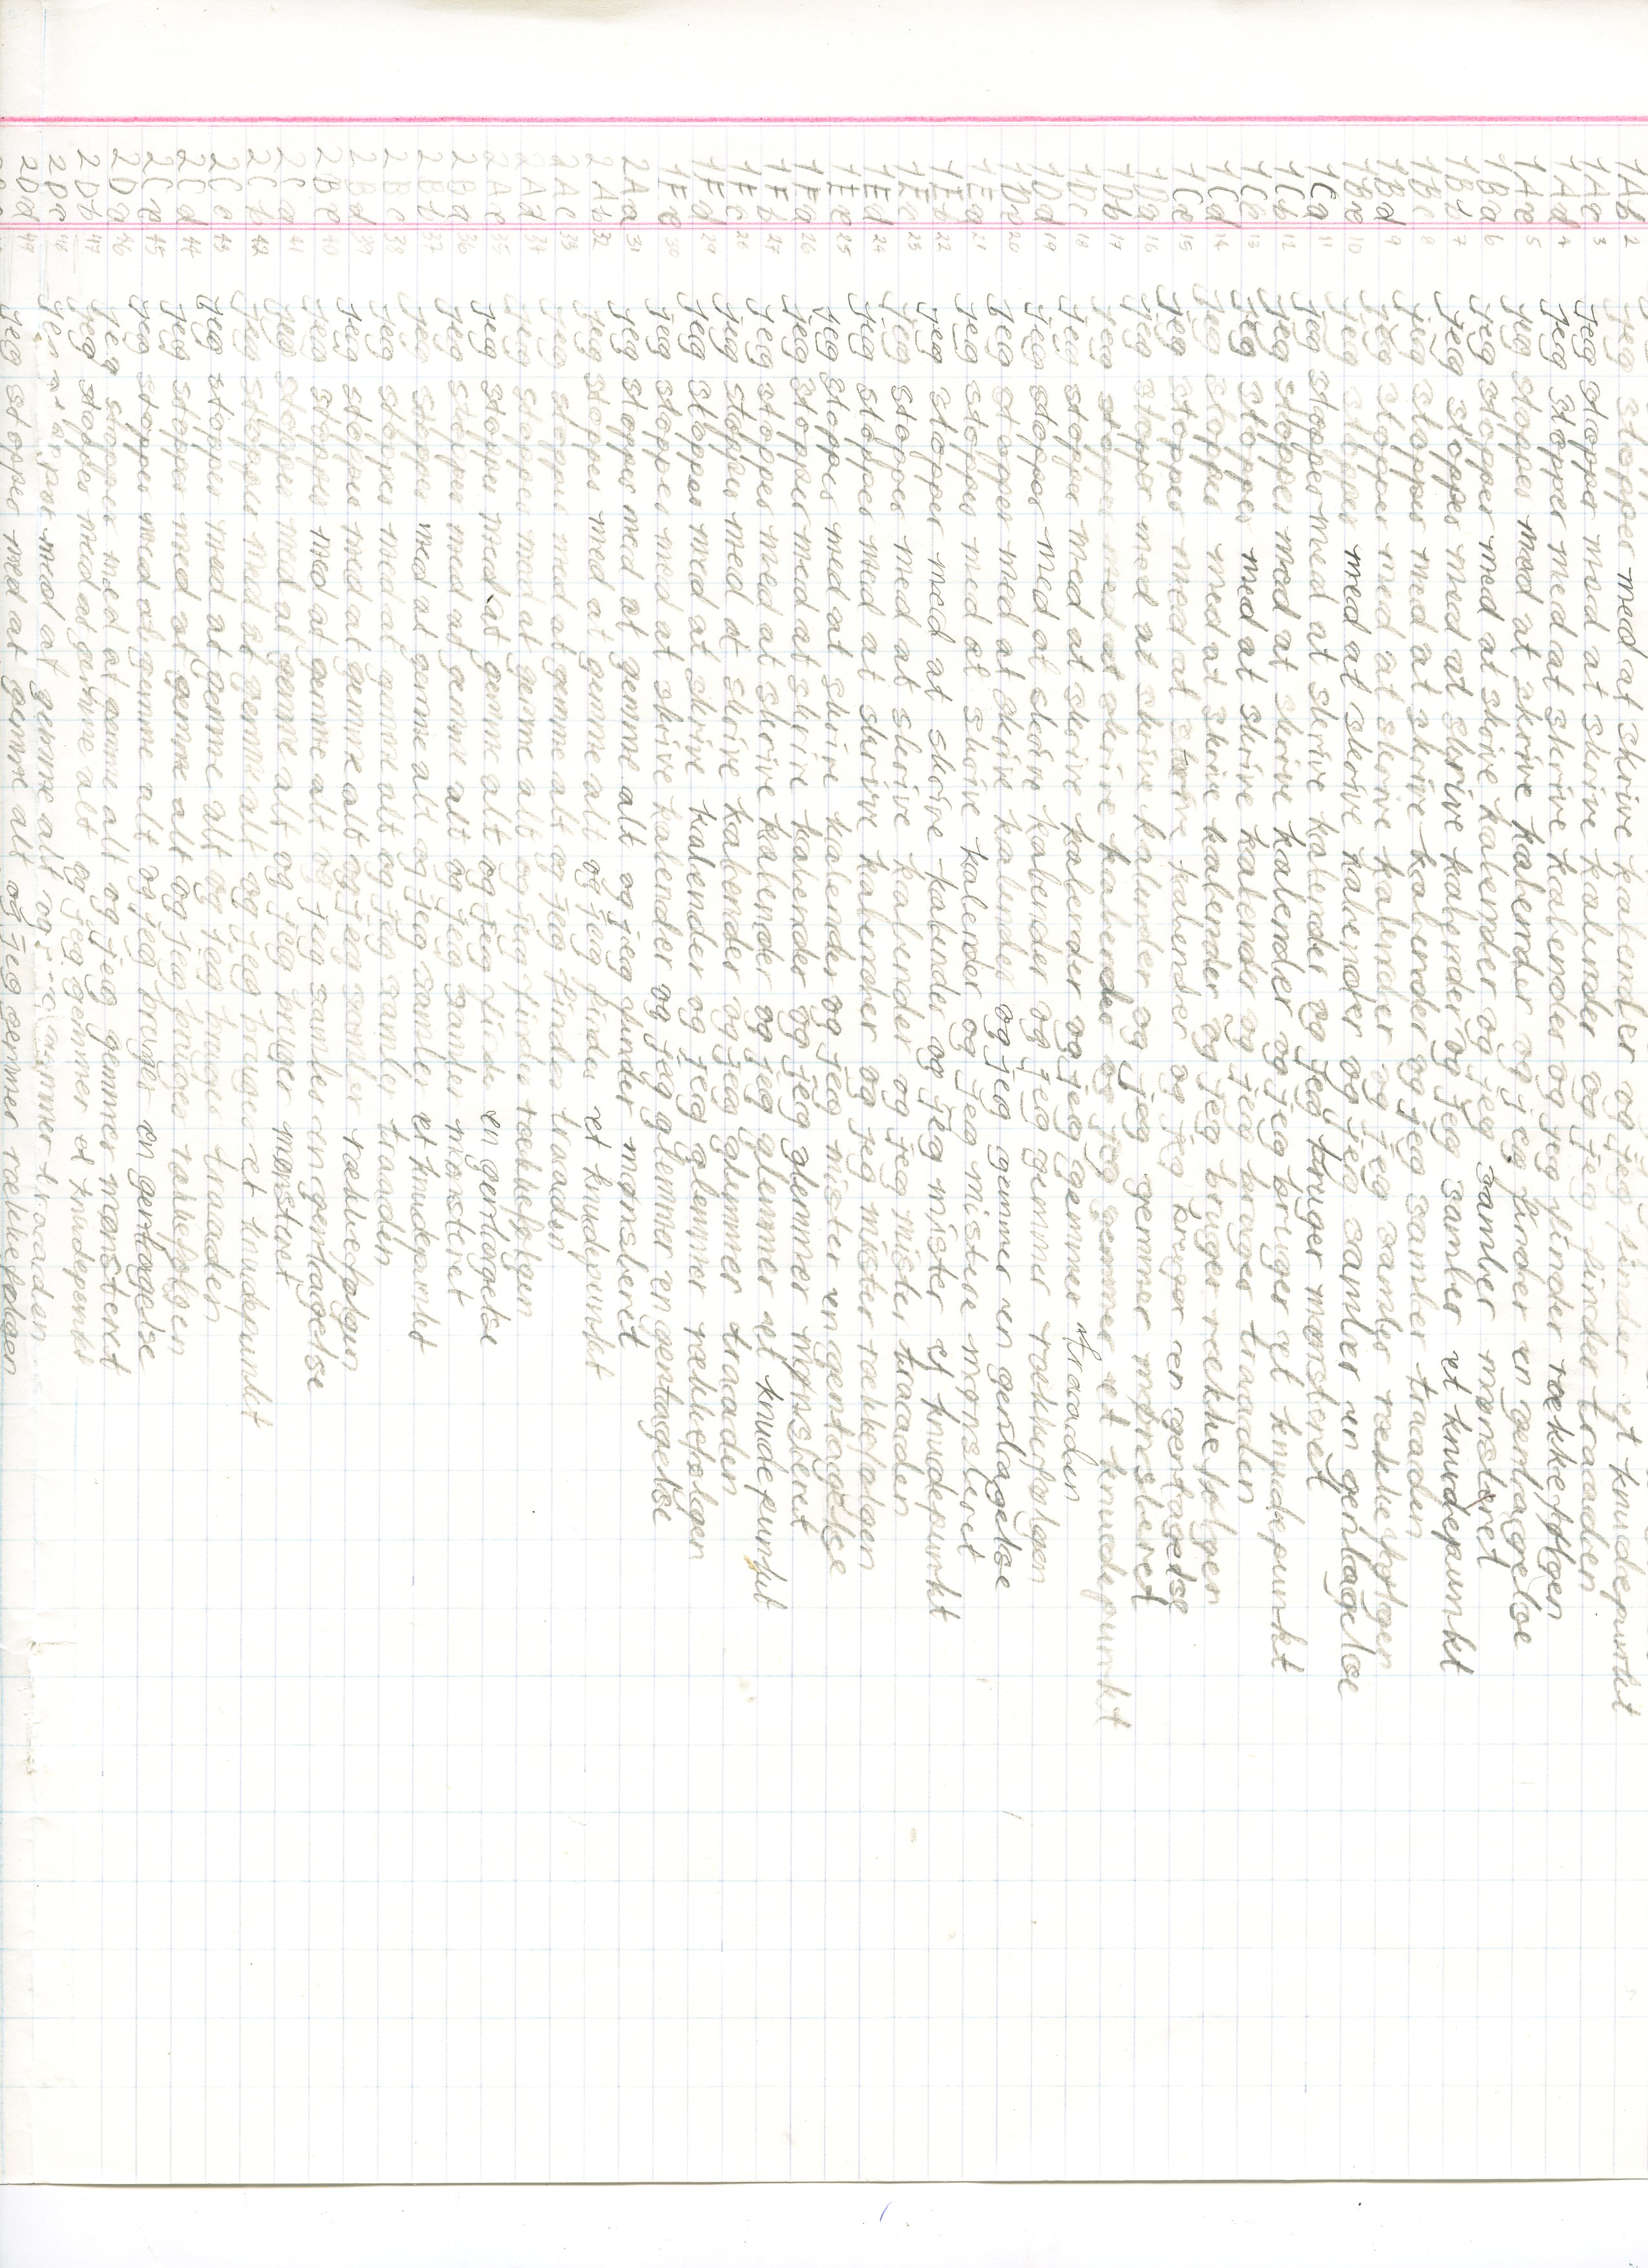 1Ab 2 jeg stopper med at skrive kalender og jeg finder et knudepunkt
1Ac 3 jeg stopper med at skrive kalender og jeg finder traaden
1Ad 4 jeg stopper med at skrive kalender og jeg finder rækkefølgen
1Ae 5 jeg stopper med at skrive kalender og jeg finder en gentagelse
1Ba 6 jeg stopper med at skrive kalender og jeg samler mønsteret
1Bb 7 jeg stopper med at skrive kalender og jeg samler et knudepunkt
1Bc 8 jeg stopper med at skrive kalender og jeg samler traaden
1Bd 9 jeg stopper med at skrive kalender og jeg samler rækkefølgen
1Be 10 jeg stopper med at skrive kalender og jeg samler en gentagelse
1Ca 11 jeg stopper med at skrive kalender og jeg bruger mønsteret
1Cb 12 jeg stopper med at skrive kalender og jeg bruger et knudepunkt
1Cc 13 jeg stopper med at skrive kalender og jeg bruger traaden
1Cd 14 jeg stopper med at skrive kalender og jeg bruger rækkefølgen
1Ce 15 jeg stopper med at skrive kalender og jeg bruger en gentagelse
1Da 16 jeg stopper med at skrive kalender og jeg gemmer mønsteret
1Db 17 jeg stopper med at skrive kalender og jeg gemmer et knudepunkt
1Dc 18 jeg stopper med at skrive kalender og jeg gemmer traaden
1Dd 19 jeg stopper med at skrive kalender og jeg gemmer rækkefølgen
1De 20 jeg stopper med at skrive kalender og jeg gemmer en gentagelse
1Ea 21 jeg stopper med at skrive kalender og jeg mistere mønsteret
1Eb 22 jeg stopper med at skrive kalender og jeg mister et knudepunkt
1Ec 23 jeg stopper med at skrive kalender og jeg mister traaden
1Ed 24 jeg stopper med at skrive kalender og jeg mister rækkefølgen
1Ee 25 jeg stopper med at skrive kalender og jeg mister en gentagelse
1Fa 26 jeg stopper med at skrive kalender og jeg glemmer mønsteret
1Fb 27 jeg stopper med at skrive kalender og jeg glemmer et knudepunkt
1Fc 28 jeg stopper med at skrive kalender og jeg glemmer traaden
1Fd 29 jeg stopper med at skrive kalender og jeg glemmer rækkefølgen
1Fe 30 jeg stopper med at skrive kalender og jeg glemmer en gentagelse
2Aa 31 jeg stopper med at gemme alt og jeg finder mønsteret
2Ab 32 jeg stopper med at gemme alt og jeg finder et knudepunkt
2Ac 33 jeg stopper med at gemme alt og jeg finder traaden
2Ad 34 jeg stopper med at gemme alt og jeg finder rækkefølgen
2Ae 35 jeg stopper med at gemme alt og jeg finder en gentagelse
2Ba 36 jeg stopper med at gemme alt og jeg samler mønsteret
2Bb 37 jeg stopper med at gemme alt og jeg samler et knudepunkt
2Bc 38 jeg stopper med at gemme alt og jeg samler traaden
2Bd 39 jeg stopper med at gemme alt og jeg samler rækkefølgen
2Be 40 jeg stopper med at gemme alt og jeg samler en gentagelse
2Ca 41 jeg stopper med at gemme alt og jeg bruger mønsteret
2Cb 42 jeg stopper med at gemme alt og jeg bruger et knudepunkt
2Cc 43 jeg stopper med at gemme alt og jeg bruger traaden
2Cd 44 jeg stopper med at gemme alt og jeg bruger rækkefølgen
2Ce 45 jeg stopper med at gemme alt og jeg bruger en gentagelse
2Da 46 jeg stopper med at gemme alt og jeg gemmer mønsteret
2Db 47 jeg stopper med at gemme alt og jeg gemmer et knudepunkt
2Dc 48 med at gemme alt og gemmer traaden
2Dd 49 jeg stopper med at gemme alt og jeg gemmer rækkefølgen